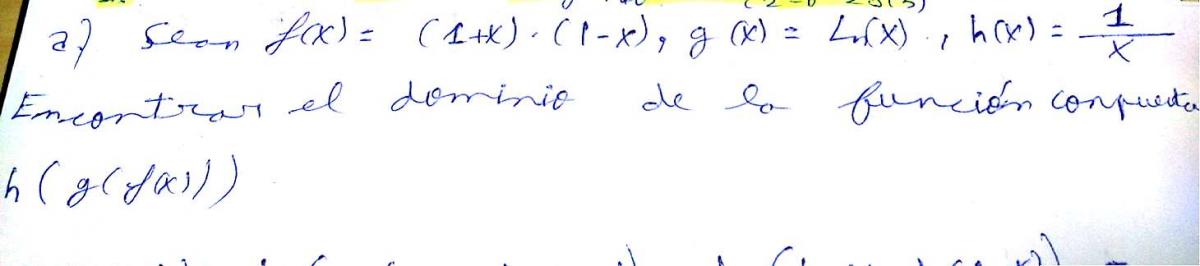 a) Sean f(x) = (1+x) · (1-x), g(x) = Ln(x), h(x) = 1/x
Encontrar el dominio de la función conpuesta
h(g(f(x)))